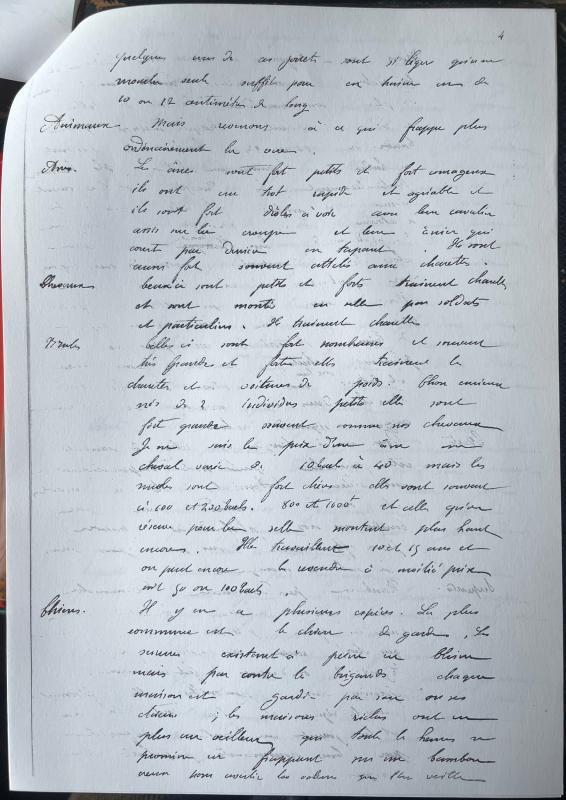 4
Quelques uns de ces sont si léger qu'une
mouche seule suffit pour en un de
10 ou 12 centimètres de long
Animaux Mais revenons à ce qui frappe plus
ordinairement la vue.
Anes. Les ânes sont fort petits et fort courageux
ils ont un trot rapide et agréable et
ils sont fort drôles à voir avec leur cavalier
assis sur la croupe et leur ânier qui
court par derrière en tapant. Ils sont
aussi fort souvent attelés aux charettes.
Chevaux ceux ci sont petits et forts trainent charettes
et sont montés en selle par soldats
et particuliers. Ils trainent charettes
Mules Celles ci sont fort nombreuses et souvent
très grandes et fortes elles trainent les
charettes et voitures de poids. Chose curieuse
nés de 2 individus petits elles sont
fort grandes souvent comme nos chevaux
Je ne sais le prix d'un âne un
cheval varie de 10 taels à 40 mais les
mules sont fort chères elles sont souvent
à 100 et 200 taels. 800 et 1000 et celles qu'on
réserve pour la selle montent plus haut
encore. Elle travaillent 10 et 15 ans et
on peut encore la revendre à moitié prix
soit 50 ou 100 taels.
Chiens. Il y en a plusieurs espèces. La plus
commune est le chien de garde. Les
existant à peine en Chine
mais par contre le brigands chaque
maison est gardé par son ou ses
chiens ; les maisons riches ont en
plus un veilleur qui toute les heures se
promène en frappant sur un bambou
creux pour avertir les voleurs que l'on veille